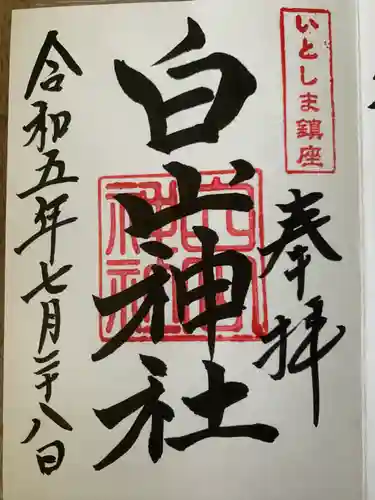 いとしま鎮座
奉拝
白山神社
白山神社
令和五年七月二十八日